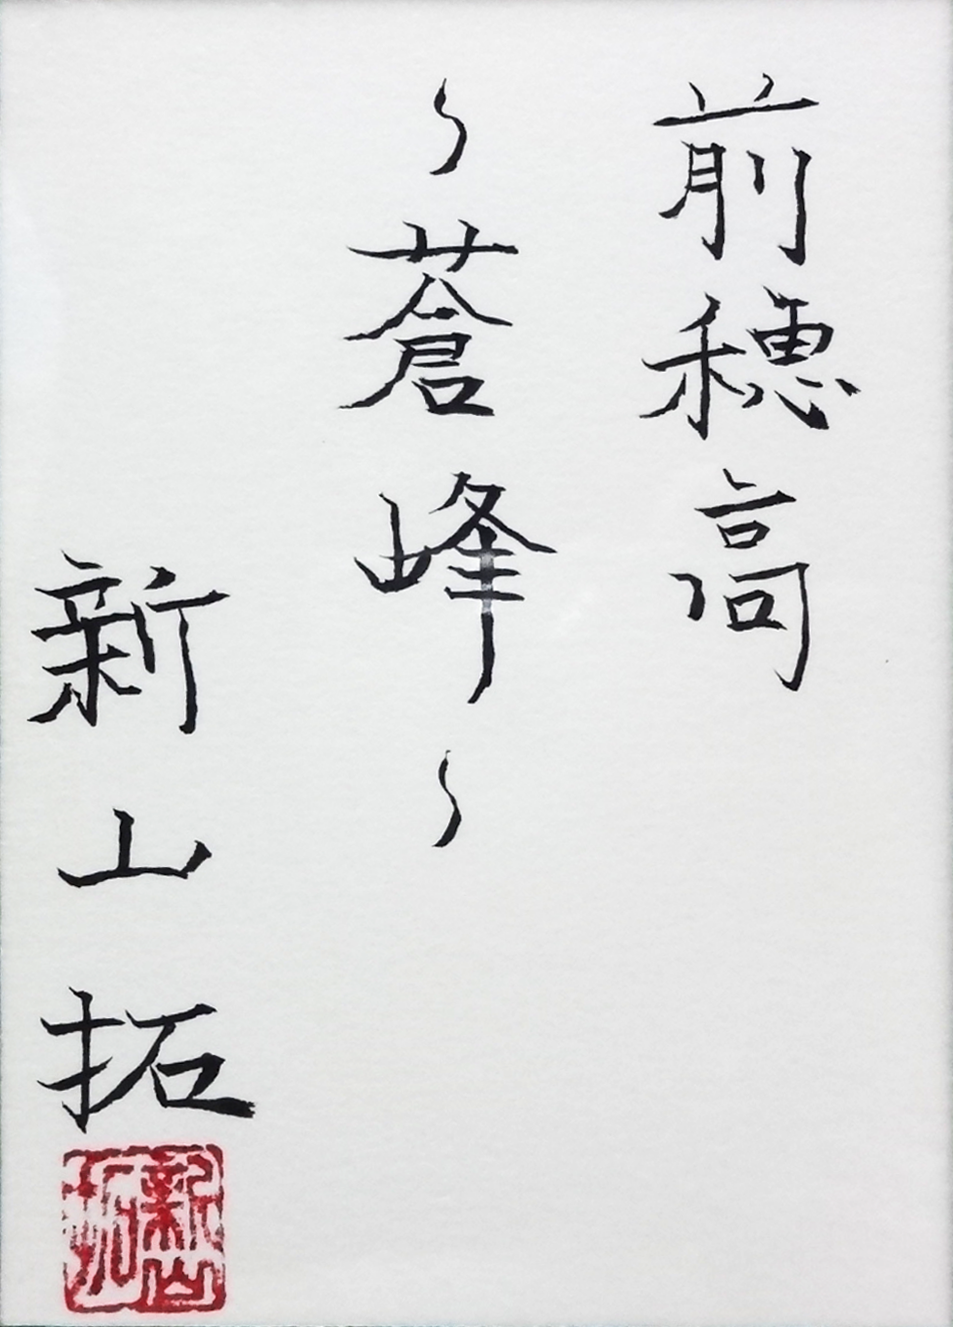 前穂高
～蒼峰～
新山拓
新山拓